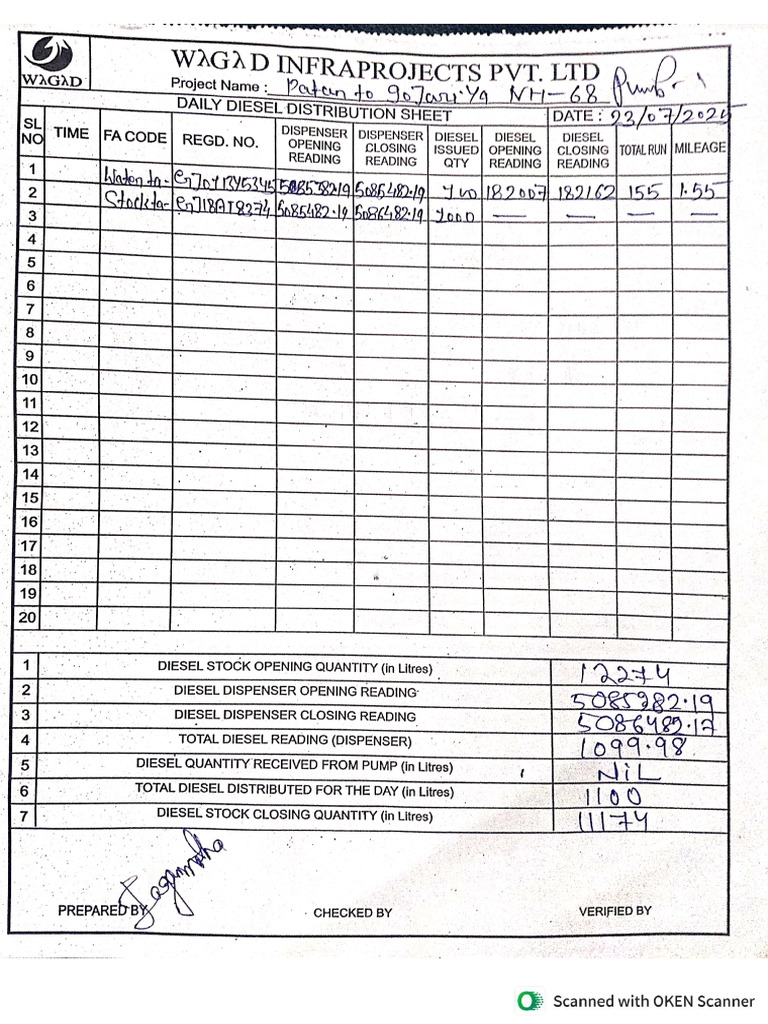 WAGAD INFRAPROJECTS PVT. LTD
WAGAD
Project Name : Patan to goJariya NH-68
DAILY DIESEL DISTRIBUTION SHEET DATE : 23/07/2025
SL NO TIME FA CODE REGD. NO. DISPENSER OPENING READING DISPENSER CLOSING READING DIESEL ISSUED QTY DIESEL OPENING READING DIESEL CLOSING READING TOTAL RUN MILEAGE
1 Water ta- 5085482.19 182007 182162 155 1.55
2 Stock ta- 5085482.19 5086482.19 1000 — — — —
3
4
5
6
7
8
9
10
11
12
13
14
15
16
17
18
19
20
1 DIESEL STOCK OPENING QUANTITY (in Litres) 12274
2 DIESEL DISPENSER OPENING READING
3 DIESEL DISPENSER CLOSING READING 5086482.17
4 TOTAL DIESEL READING (DISPENSER) 1099.98
5 DIESEL QUANTITY RECEIVED FROM PUMP (in Litres) NiL
6 TOTAL DIESEL DISTRIBUTED FOR THE DAY (in Litres) 1100
7 DIESEL STOCK CLOSING QUANTITY (in Litres) 11174
PREPARED BY CHECKED BY VERIFIED BY
Scanned with OKEN Scanner